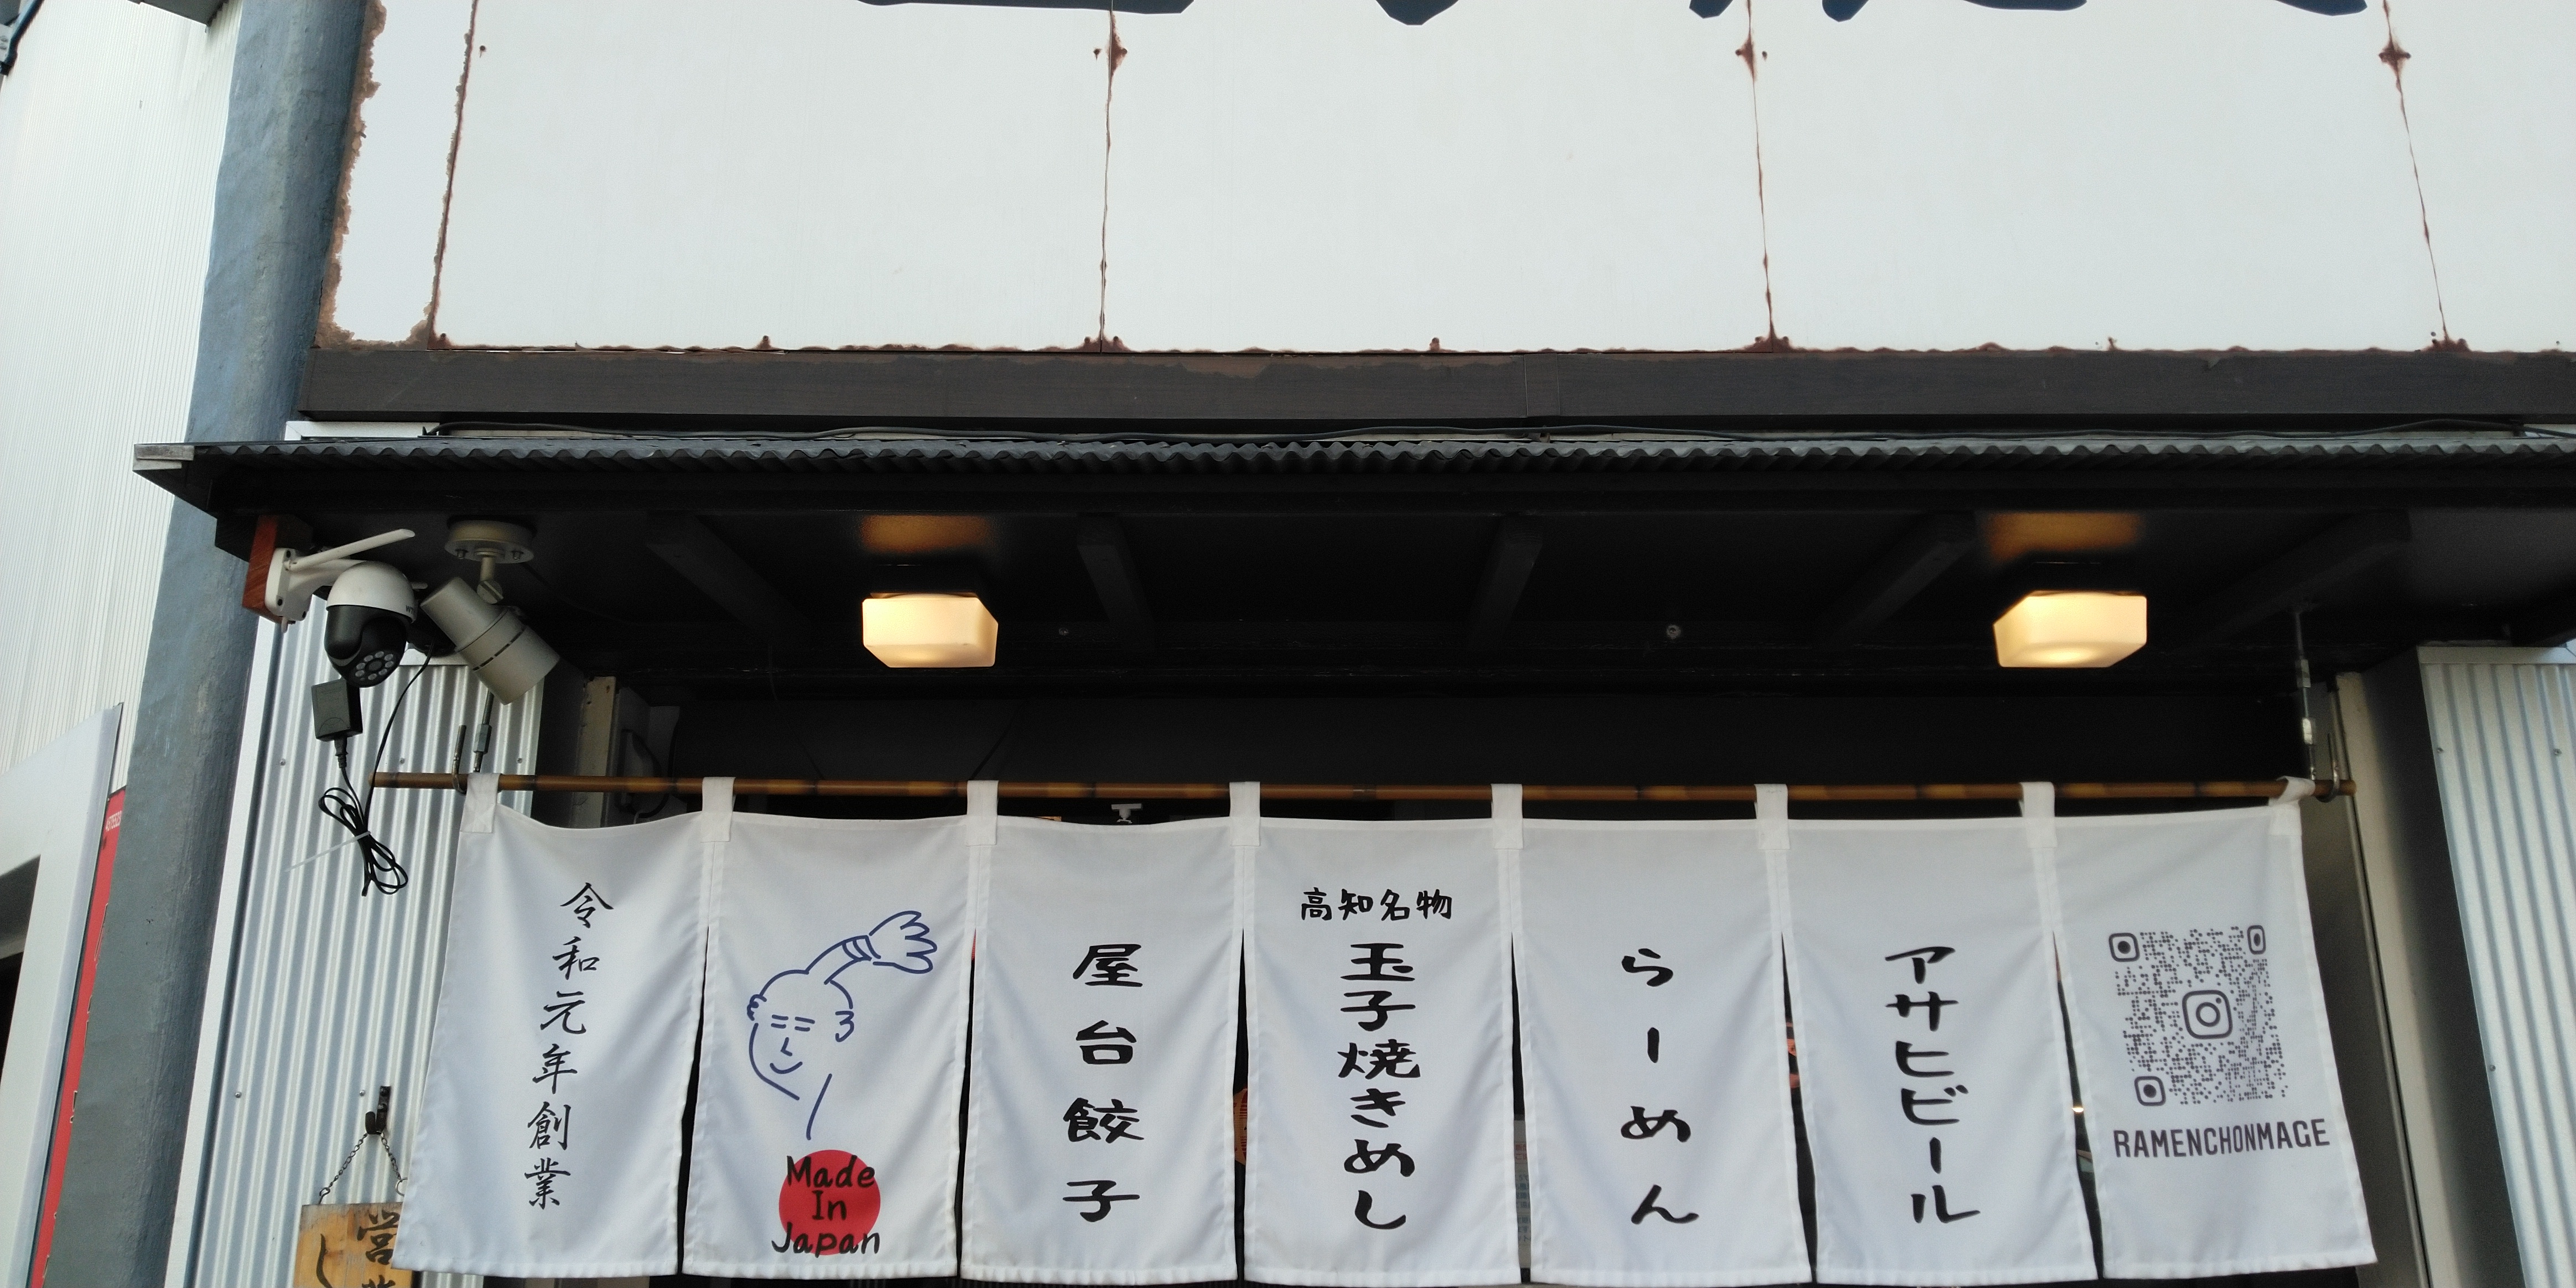 令和元年創業
Made
In
Japan
屋台餃子
高知名物
玉子焼きめし
らーめん
アサヒビール
RAMENCHONMAGE
営